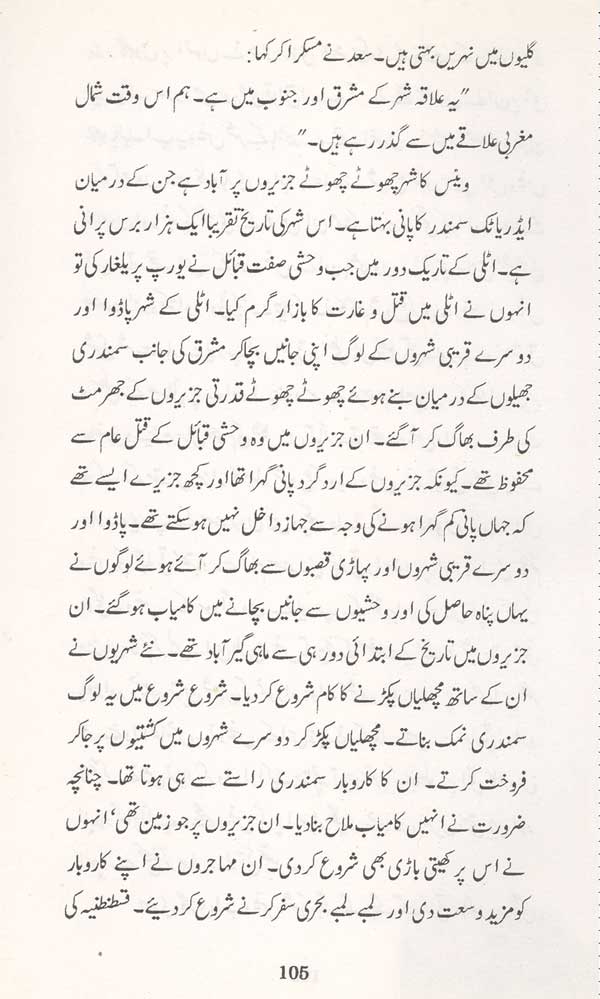 گلیوں میں نہریں بہتی ہیں۔ سعد نے مسکرا کر کہا:
"یہ علاقہ شہر کے مشرق اور جنوب میں ہے۔ ہم اس وقت شمال
مغربی علاقے میں سے گذر رہے ہیں۔"
وینس کا شہر چھوٹے چھوٹے جزیروں پر آباد ہے جن کے درمیان
ایڈریاٹک سمندر کا پانی بہتا ہے۔ اس شہر کی تاریخ تقریبا ایک ہزار برس پرانی
ہے۔ اٹلی کے تاریک دور میں جب وحشی صفت قبائل نے یورپ پر یلغار کی تو
انہوں نے اٹلی میں قتل و غارت کا بازار گرم کیا۔ اٹلی کے شہر پاڈوا اور
دوسرے قریبی شہروں کے لوگ اپنی جانیں بچا کر مشرق کی جانب سمندری
جھیلوں کے درمیان بنے ہوئے چھوٹے چھوٹے قدرتی جزیروں کے جھرمٹ
کی طرف بھاگ کر آ گئے۔ ان جزیروں میں وہ وحشی قبائل کے قتل عام سے
محفوظ تھے۔ کیونکہ جزیروں کے ارد گرد پانی گہرا تھا اور کچھ جزیرے ایسے تھے
کہ جہاں پانی کم گہرا ہونے کی وجہ سے جہاز داخل نہیں ہو سکتے تھے۔ پاڈوا اور
دوسرے قریبی شہروں اور پہاڑی قصبوں سے بھاگ کر آئے ہوئے لوگوں نے
یہاں پناہ حاصل کی اور وحشیوں سے جانیں بچانے میں کامیاب ہو گئے۔ ان
جزیروں میں تاریخ کے ابتدائی دور ہی سے ماہی گیر آباد تھے۔ نئے شہریوں نے
ان کے ساتھ مچھلیاں پکڑنے کا کام شروع کر دیا۔ شروع شروع میں یہ لوگ
سمندری نمک بناتے۔ مچھلیاں پکڑ کر دوسرے شہروں میں کشتیوں پر جا کر
فروخت کرتے۔ ان کا کاروبار سمندری راستے سے ہی ہوتا تھا۔ چنانچہ
ضرورت نے انہیں کامیاب ملاح بنا دیا۔ ان جزیروں پر جو زمین تھی، انہوں
نے اس پر کھیتی باڑی بھی شروع کر دی۔ ان مہاجروں نے اپنے کاروبار
کو مزید وسعت دی اور لمبے لمبے بحری سفر کرنے شروع کر دیئے۔ قسطنطنیہ کی
105